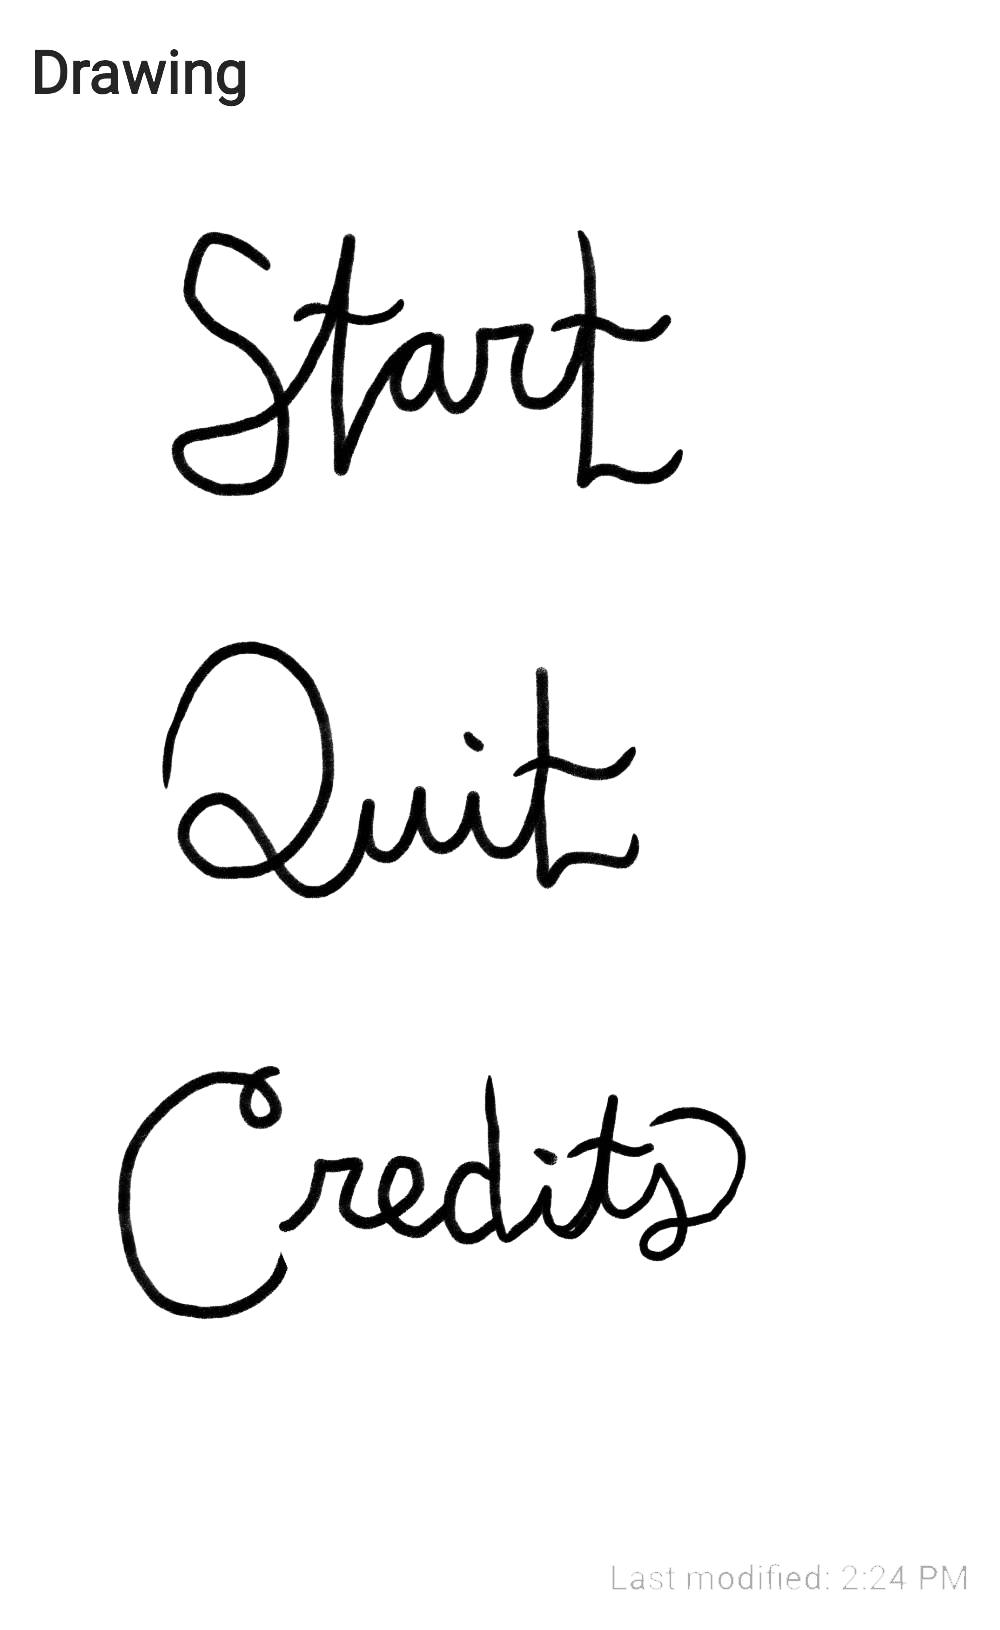 Drawing
Start
Quit
Credits
Last modified: 2:24 PM